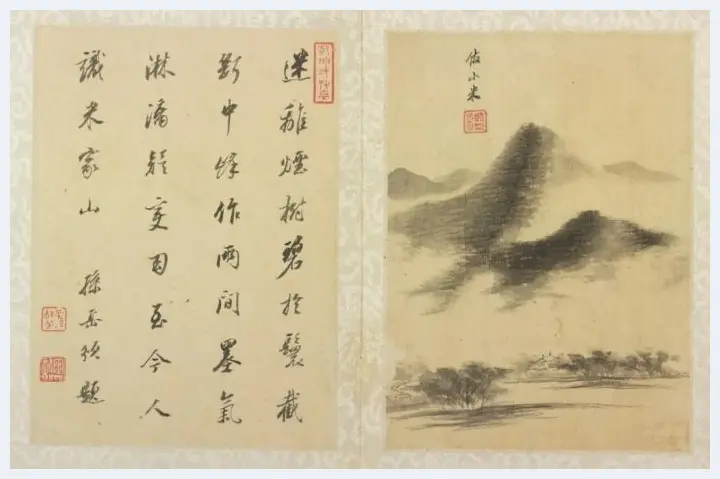 倣小米
迷離煙樹碧於鬟截
斷中峰作兩間墨氣
淋漓至今人
識米家山 孫岳頒題